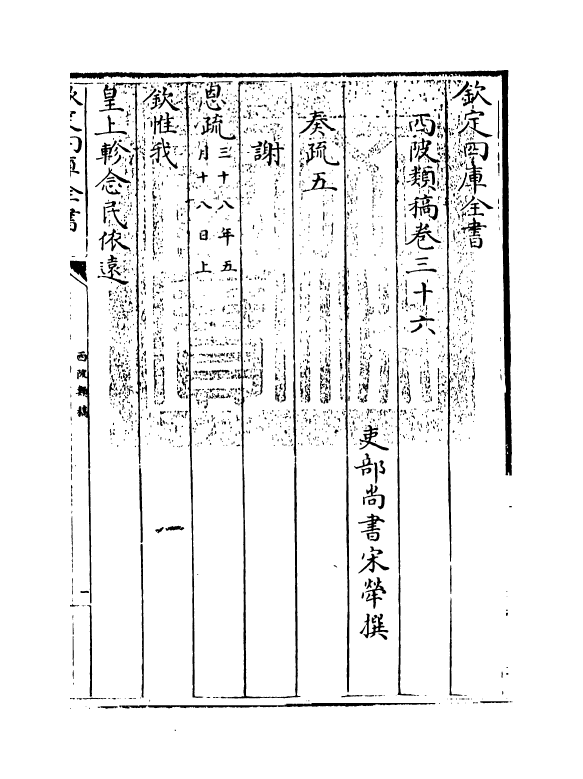 欽定四庫全書
西陂類稿卷三十六
吏部尚書宋犖撰
奏疏五
謝
恩疏三十八年五
月十八日上
欽惟我
皇上軫念民依遠
欽定四庫全書
西陂類稿
一